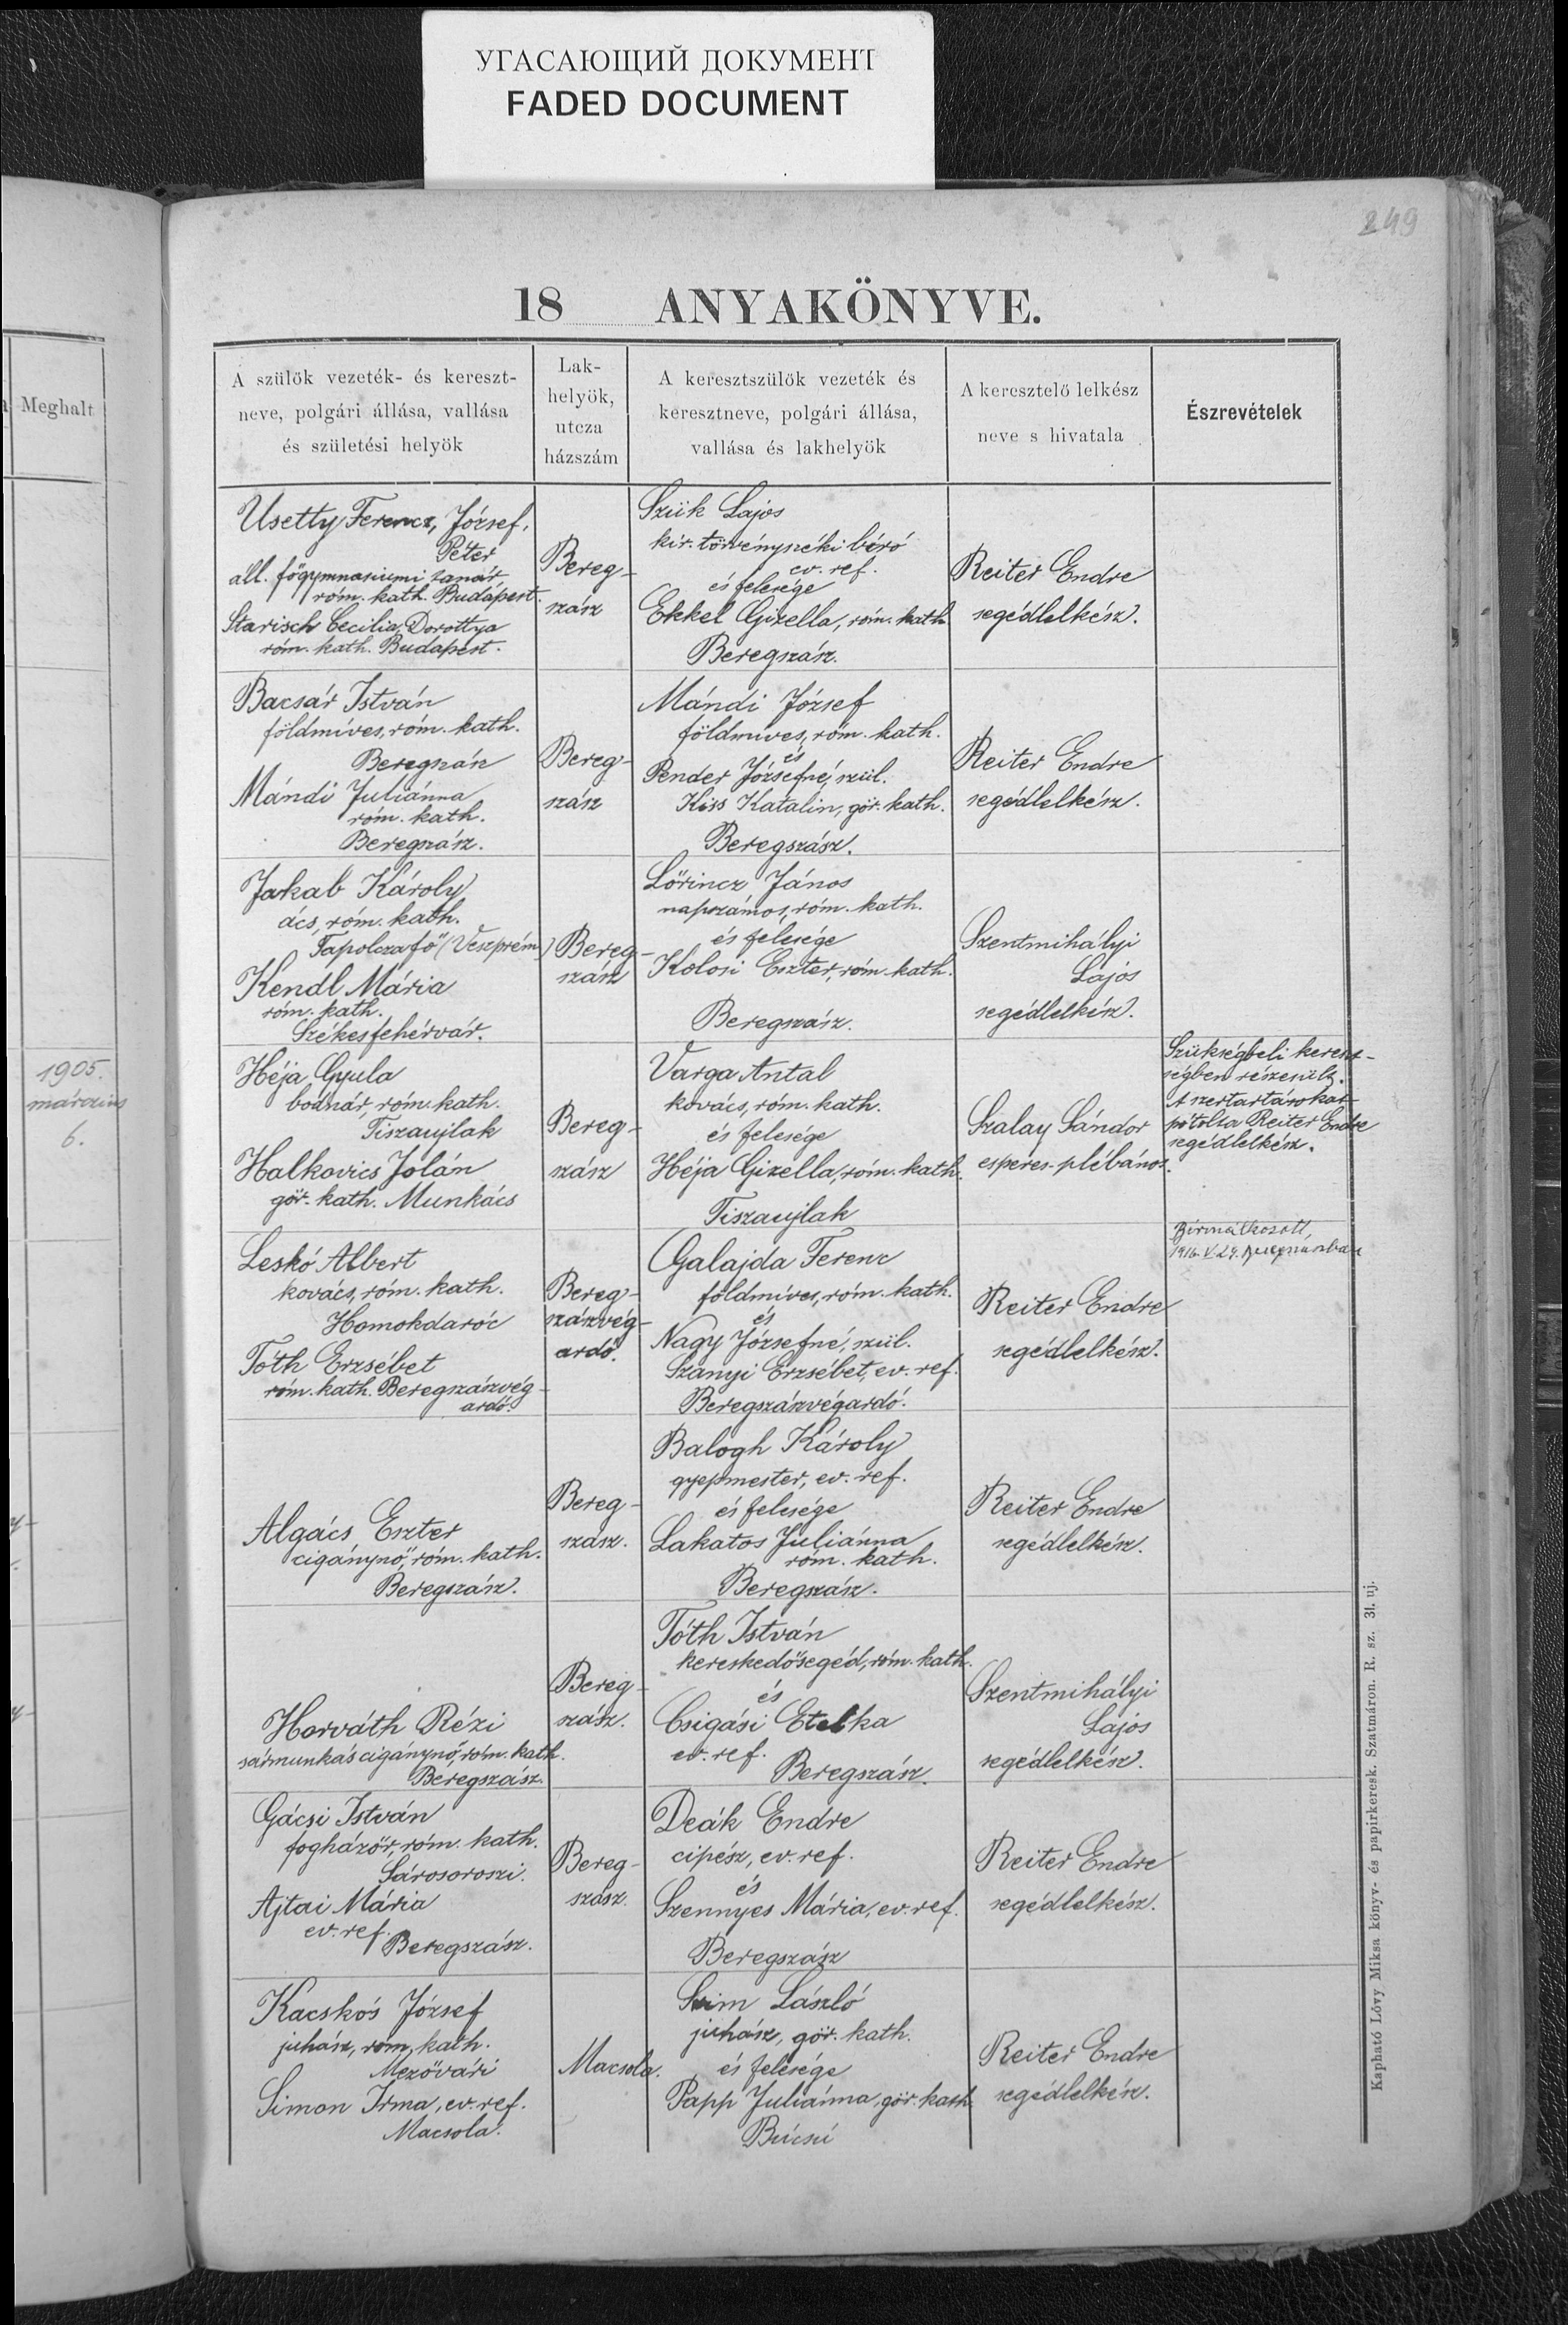 УГАСАЮЩИЙ ДОКУМЕНТ
FADED DOCUMENT
249
18 ANYAKÖNYVE.
Meghalt
1905.
márczius
6.
A szülök vezeték- és kereszt-
neve, polgári állása, vallása
és születési helyök
Lak-
helyök,
utcza
házszám
A keresztszülök vezeték és
keresztneve, polgári állása,
vallása és lakhelyök
A keresztelö lelkész
neve s hivatala
Észrevételek
Usetty Ferencz, József,
Péter
áll. főgymnasiumi tanár
róm. kath. Budapest.
Starisch Cecilia, Dorottya
róm. kath. Budapest.
Bereg-
szász
Szük Lajos
kir. törvényszéki biró
ev. ref.
és felesége
Ekkel Gizella, róm. kath.
Beregszász.
Reiter Endre
segédlelkész.
Bacsár István
földmíves, róm. kath.
Beregszász
Mándi Juliánna
róm. kath.
Beregszász.
Bereg-
szász
Mándi József
földmíves, róm. kath.
és
Pender Józsefné, szül.
Kiss Katalin, gör. kath.
Beregszász.
Reiter Endre
segédlelkész.
Jakab Károly
ács, róm. kath.
Tapolczafő (Veszprém)
Kendl Mária
róm. kath.
Székesfehérvár.
Bereg-
szász
Lőrincz János
napszámos, róm. kath.
és felesége
Kolosi Eszter, róm. kath.
Beregszász.
Szentmihályi
Lajos
segédlelkész.
Héja Gyula
bodnár, róm. kath.
Tiszaujlak
Halkovics Jolán
gör. kath. Munkács
Bereg-
szász
Varga Antal
kovács, róm. kath.
és felesége
Héja Gizella, róm. kath.
Tiszaujlak
Szalay Sándor
esperes-plébános.
Szükségbeli kereszt-
ségben részesült.
A szertartásokat
pótolta Reiter Endre
segédlelkész.
Leskó Albert
kovács, róm. kath.
Homokdaróc
Tóth Erzsébet
róm. kath. Beregszászvég-
ardó.
Bereg-
szászvég-
ardó.
Galajda Ferenc
földmíves, róm. kath.
és
Nagy Józsefné, szül.
Szanyi Erzsébet, ev. ref.
Beregszászvégardó.
Reiter Endre
segédlelkész.
Bérmálkozott,
1916. V. 29.
Algács Eszter
cigánynő, róm. kath.
Beregszász.
Bereg-
szász.
Balogh Károly
gyepmester, ev. ref.
és felesége
Lakatos Juliánna
róm. kath.
Beregszász.
Reiter Endre
segédlelkész.
Horváth Rézi
sármunkás cigánynő, róm. kath.
Beregszász.
Bereg-
szász.
Tóth István
kereskedősegéd, róm. kath.
és
Csigási Etelka
ev. ref.
Beregszász.
Szentmihályi
Lajos
segédlelkész.
Gácsi István
fogházőr, róm. kath.
Sárosoroszi.
Ajtai Mária
ev. ref.
Beregszász.
Bereg-
szász.
Deák Endre
cipész, ev. ref.
és
Szennyes Mária, ev. ref.
Beregszász
Reiter Endre
segédlelkész.
Kacskós József
juhász, róm. kath.
Mezővári
Simon Irma, ev. ref.
Macsola.
Macsola.
László
juhász, gör. kath.
és felesége
Papp Juliánna, gör. kath.
Búcsú
Reiter Endre
segédlelkész.
Kapható Lővy Miksa könyv- és papirkeresk. Szatmáron. R. sz. 31. uj.